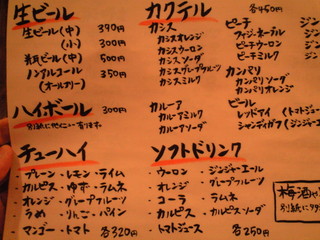 生ビール
生ビール(中) 390円
(小) 300円
瓶ビール(中) 500円
ノンアルコール 350円
(オールフリー)
ハイボール 300円
チューハイ
・プレーン・レモン・ライム
・カルピス・ゆず・ラムネ
・オレンジ・グレープフルーツ
・うめ・りんご・パイン
・マンゴー・トマト 各320円
カクテル 各450円
カシス
カシスオレンジ
カシスウーロン
カシスソーダ
カシスグレープフルーツ
カシスミルク
カルーア
カルーアミルク
カルーアソーダ
ピーチ
ファジーネーブル
ピーチウーロン
ピーチミルク
カンパリ
カンパリソーダ
カンパリオレンジ
ビール
レッドアイ(トマトジュー
シャンディガフ(ジンジャ
ジン
ジン
ジン
ソフトドリンク
・ウーロン・ジンジャーエール
・オレンジ・グレープフルーツ
・コーラ・ラムネ
・カルピス・カルピスソーダ
・トマトジュース 各250円
梅酒や
別紙に